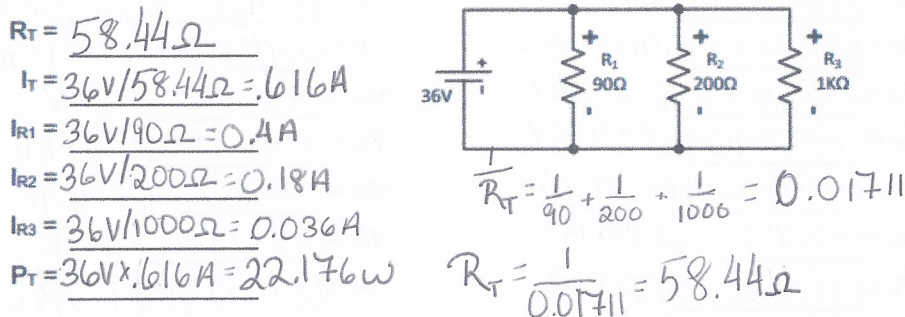 R_T = 58.44Ω
I_T = 36V/58.44Ω = .616A
I_R1 = 36V/90Ω = 0.4A
I_R2 = 36V/200Ω = 0.18A
I_R3 = 36V/1000Ω = 0.036A
P_T = 36V x .616A = 22.176w
36V
+
-
+
R₁
90Ω
-
+
R₂
200Ω
-
+
R₃
1KΩ
-
1/R_T = 1/90 + 1/200 + 1/1000 = 0.01711
R_T = 1/0.01711 = 58.44Ω